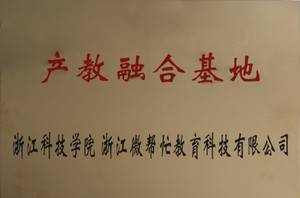 产教融合基地
浙江科技学院 浙江微帮忙教育科技有限公司